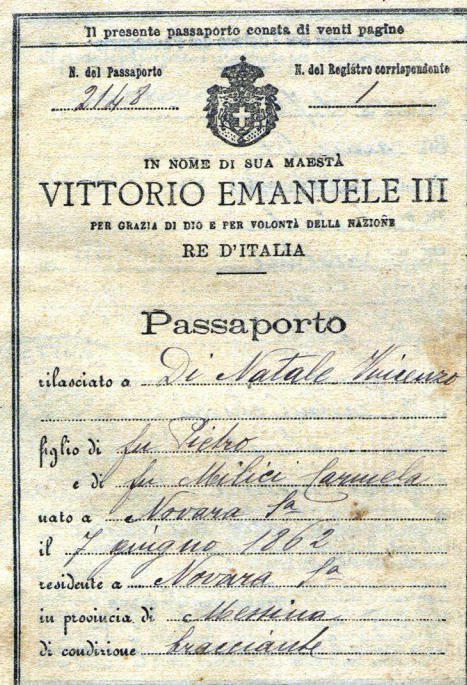 Il presente passaporto consta di venti pagine
N. del Passaporto
N. del Registro corrispondente
2148
1
IN NOME DI SUA MAESTÀ
VITTORIO EMANUELE III
PER GRAZIA DI DIO E PER VOLONTÀ DELLA NAZIONE
RE D'ITALIA
Passaporto
rilasciato a Di Natale Vincenzo
figlio di fu Pietro
e di fu Milici Carmela
nato a Novara Sa
il 7 giugno 1862
residente a Novara Sa
in provincia di Messina
di condizione bracciante